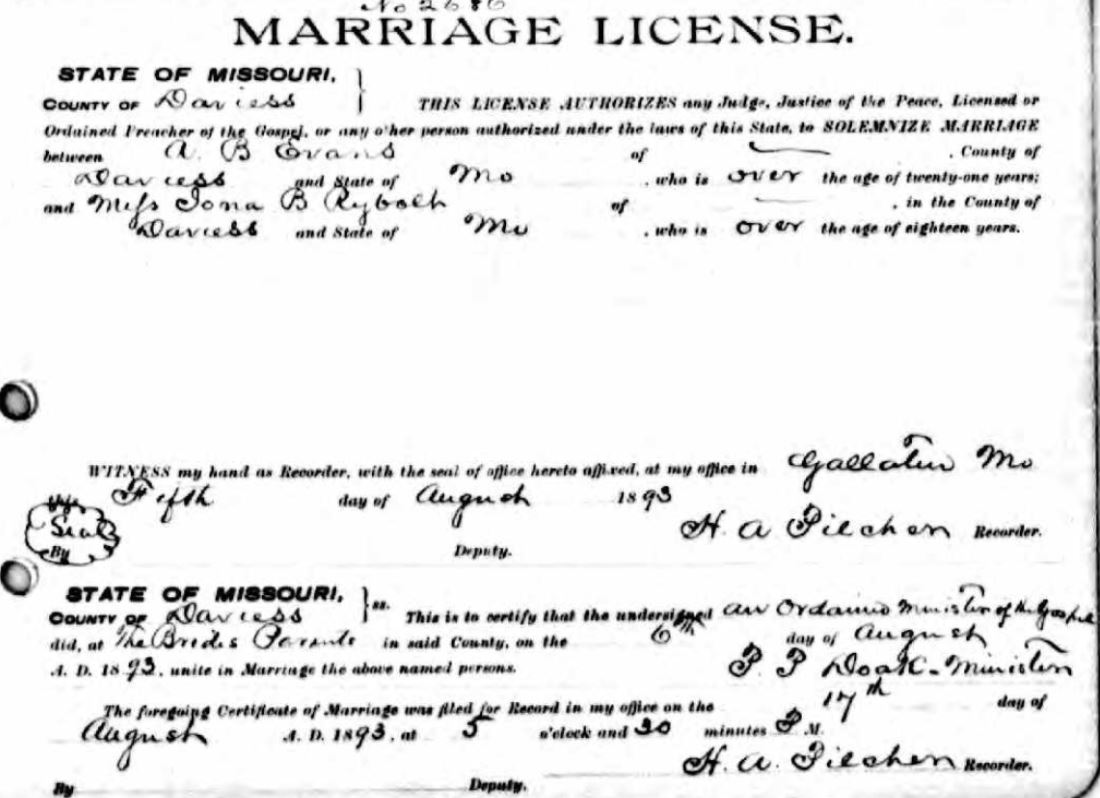 No 2686
MARRIAGE LICENSE.
STATE OF MISSOURI,
COUNTY OF Daviess } THIS LICENSE AUTHORIZES any Judge, Justice of the Peace, Licensed or
Ordained Preacher of the Gospel, or any other person authorized under the laws of this State, to SOLEMNIZE MARRIAGE
between A. B Evans of — , County of
Daviess and State of Mo , who is over the age of twenty-one years;
and Miss Iona B Rybolt of — , in the County of
Daviess and State of Mo , who is over the age of eighteen years.
WITNESS my hand as Recorder, with the seal of office hereto affixed, at my office in Gallatin Mo
this Fifth day of August 1893
Seal H. A Pilcher Recorder.
By Deputy.
STATE OF MISSOURI,
COUNTY OF Daviess } ss. This is to certify that the undersigned an Ordained Minister of the Gospel
did, at The Brides Parents in said County, on the 6th day of August
A. D. 1893, unite in Marriage the above named persons. P. P Doak - Minister
The foregoing Certificate of Marriage was filed for Record in my office on the 17th day of
August A. D. 1893, at 5 o'clock and 30 minutes P. M.
H. A. Pilcher Recorder.
By Deputy.